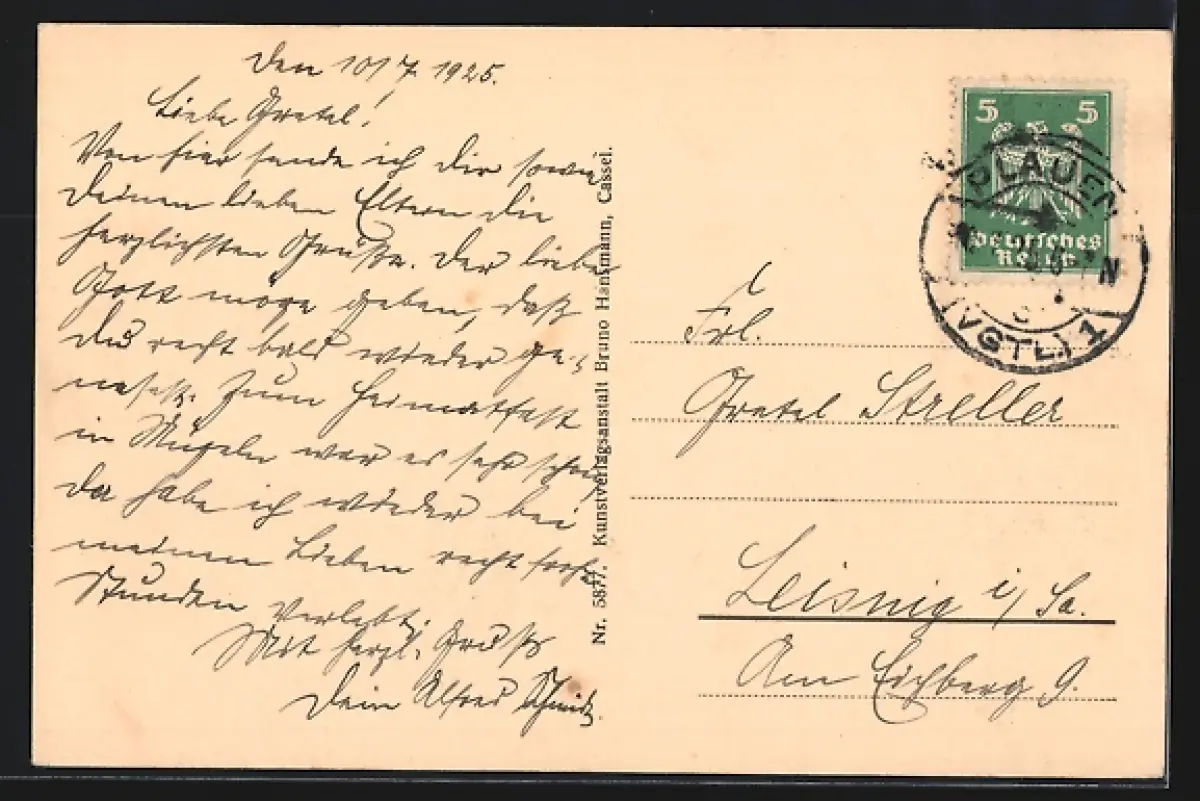 den 10/7. 1925.
Liebe Gretel!
Von hier sende ich dir sowie
deinen lieben Eltern die
herzlichsten Grüße. Der liebe
Gott möge geben, daß
du recht bald wieder ge-
nesest. Zum Heimatfest
in Mügeln war es sehr schön,
da habe ich wieder bei
meinen Lieben recht frohe
Stunden verlebt.
Mit herzl. Gruß
Dein Alfred Schmidt.
Nr. 5877. Kunstverlagsanstalt Bruno Hansmann, Cassel.
5 5
Deutsches
Reich
PLAUEN
N
(VGTL.) 1
Frl.
Gretel Streller
Leisnig i/Sa.
Am Eichberg 9.